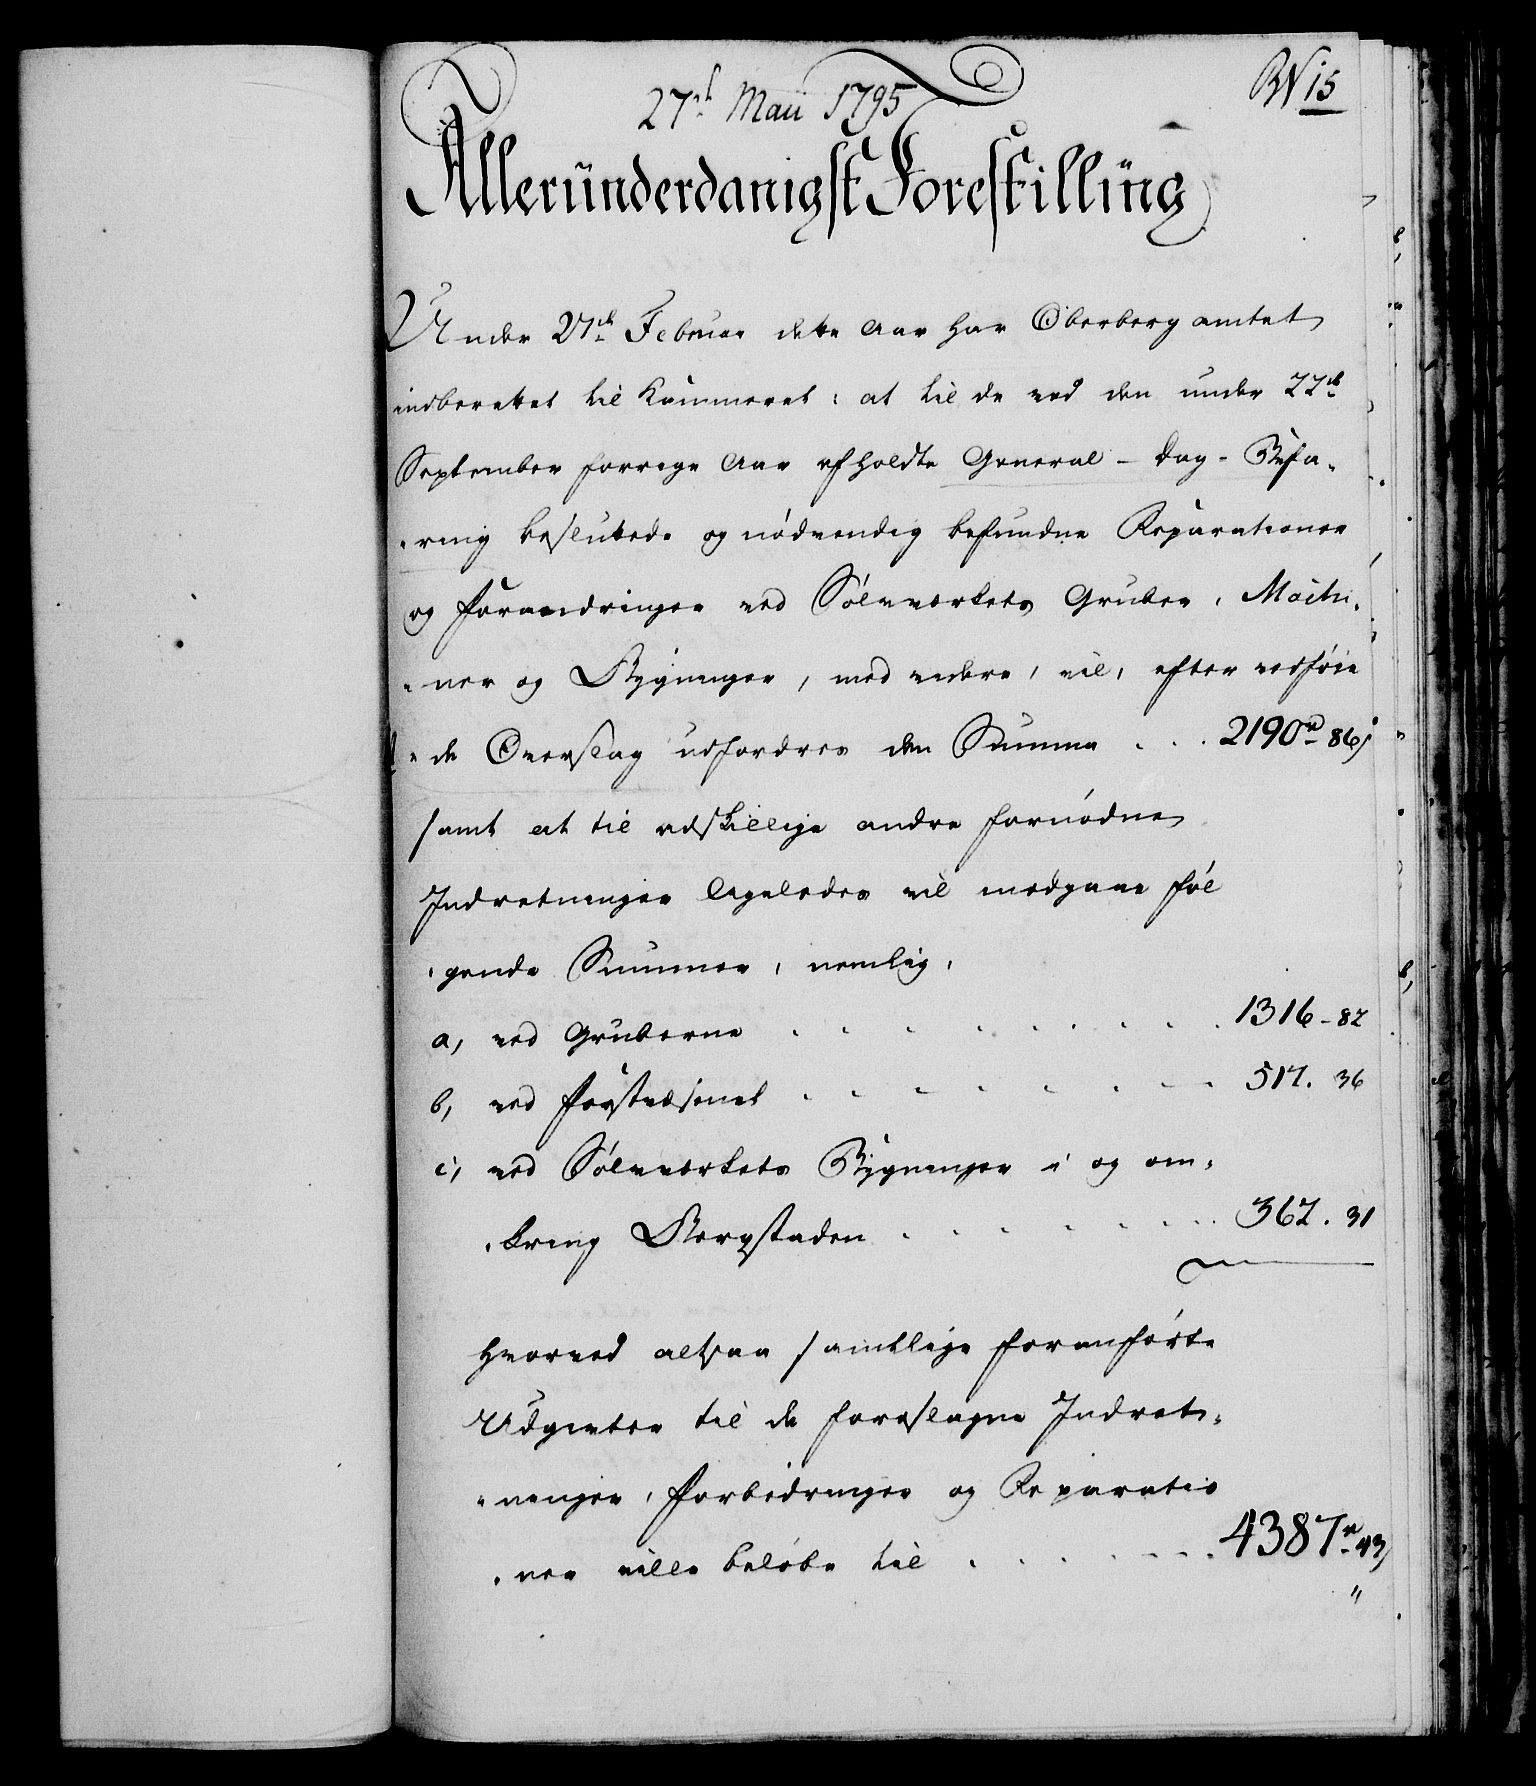 27de Maii 1795
RN 15
Allerunderdanigst Forestilling
Under 27de Februar dette Aar har Oberbergamtet
indberettet til Kammeret: at til de ved den under 22de
September forrige Aar afholdte General-Dag-Befa-
-ring besluttede og nödvendig befundne Reparationer
og Forandringer ved Sölvverkets Gruber, Machi-
-ner og Bygninger, med videre, vil, efter vedföie
-de Overslag udfordres den Summa . . . 2190rd 86s
samt at til adskillige andre fornödne
Indretninger ligeledes vil medgaae föl
-gende Summer, nemlig,
a, ved Gruberne . . . . . . . . 1316-82
b, ved Forstvæsenet . . . . . . . 517. 36
c, ved Sölvverkets Bygninger i og om-
-kring Bergstaden . . . . . . 362. 31
hvorved altsaa samtlige foranförte
Udgivter til de foreslagne Indret-
-ninger, Forbedringer og Reparatio
-ner ville belöbe til . . . . . . . 4387rd 43s
"